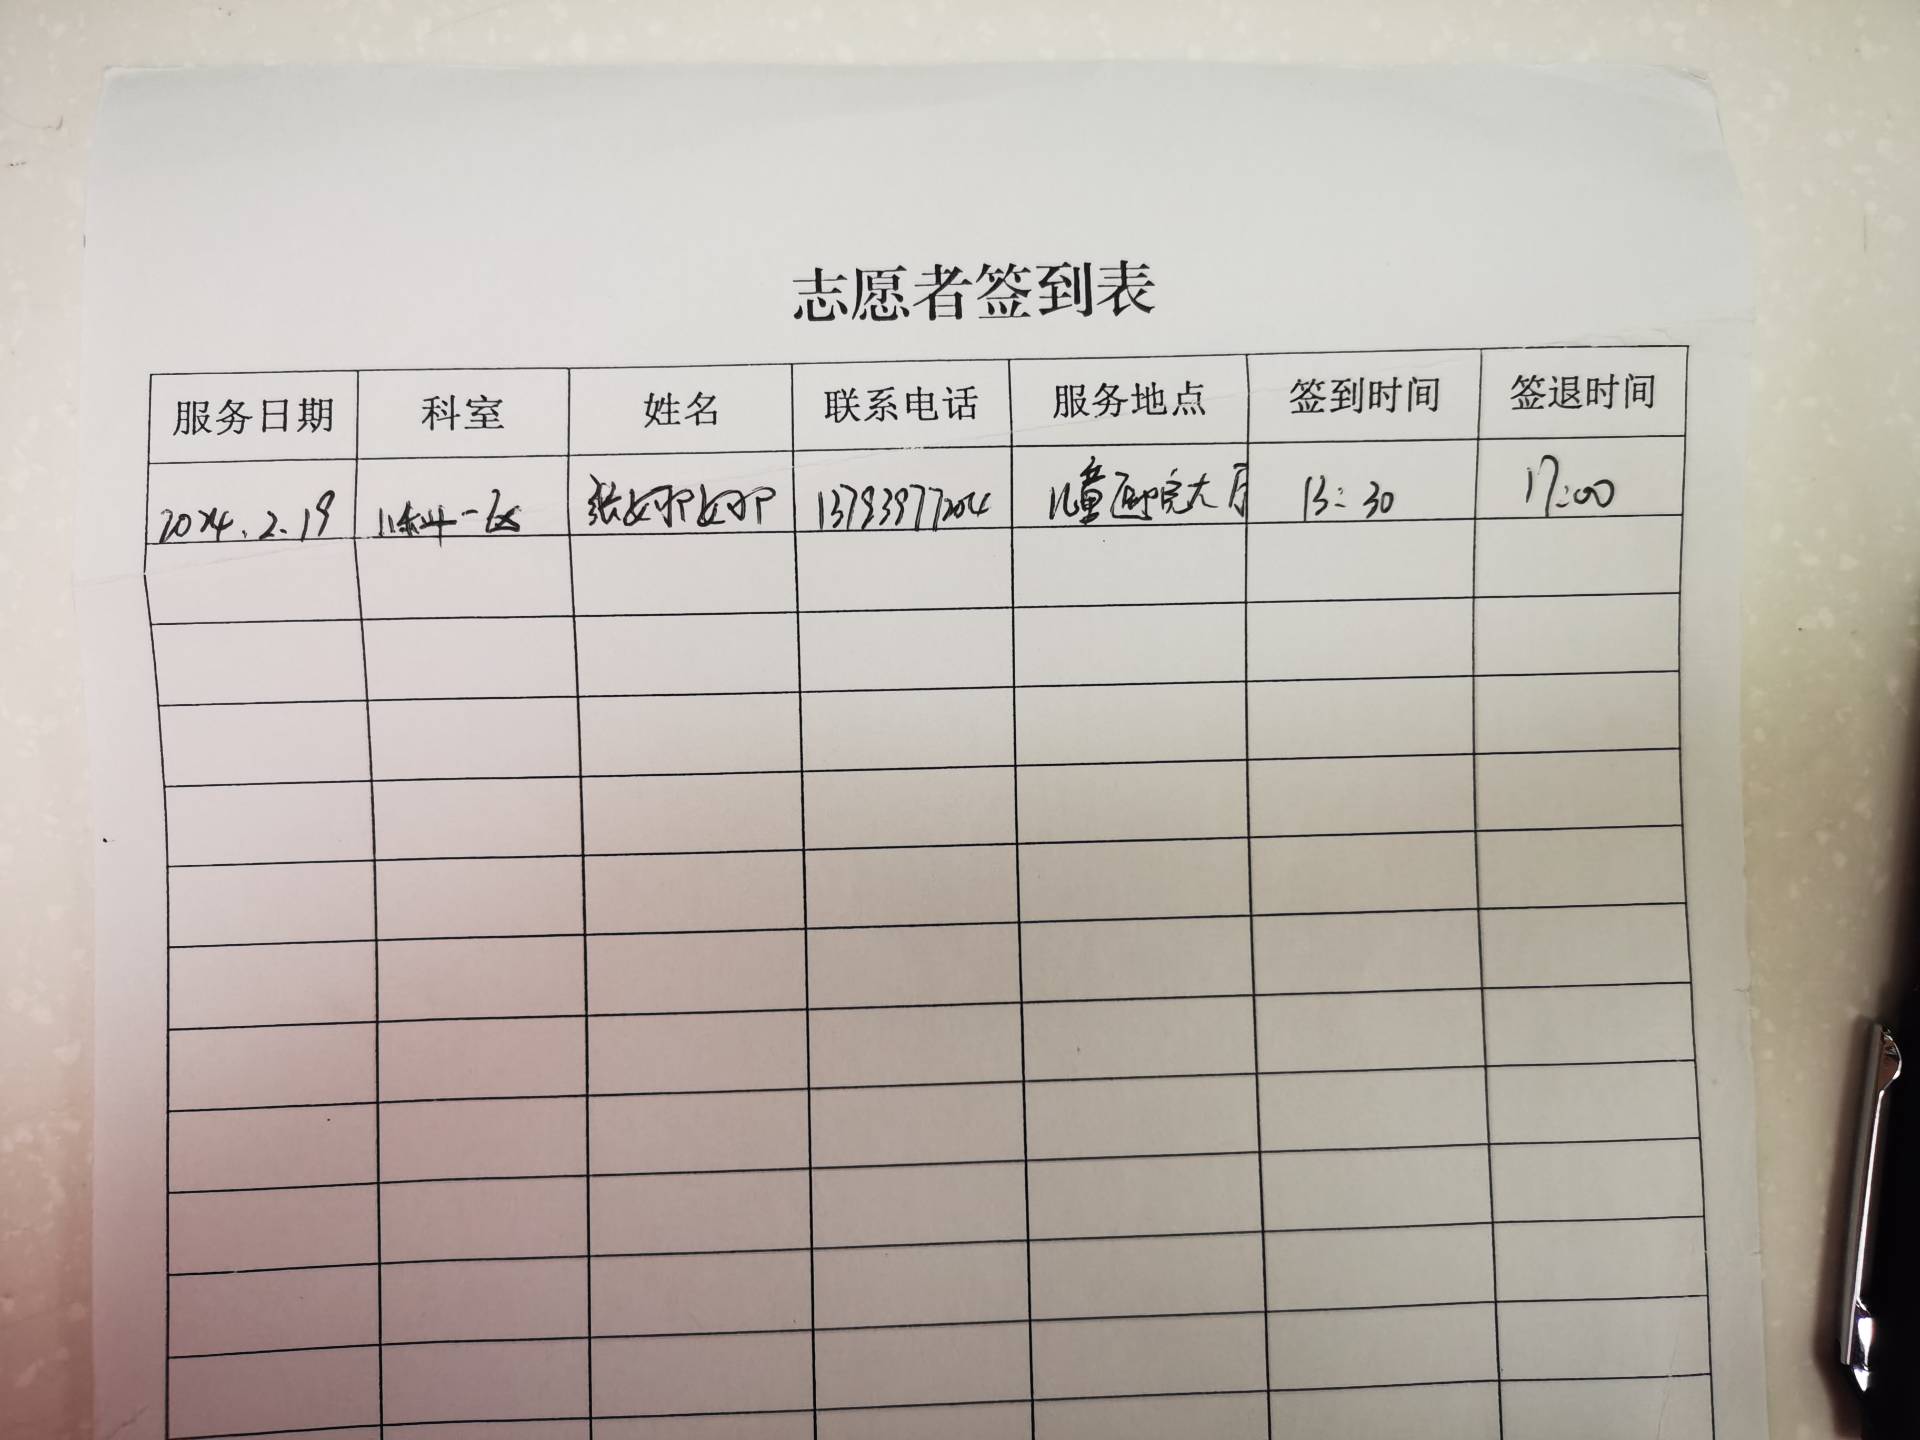 志愿者签到表
服务日期 科室 姓名 联系电话 服务地点 签到时间 签退时间
2024.2.19 儿科一区 张婷婷 13793977204 儿童医院大厅 13:30 17:00